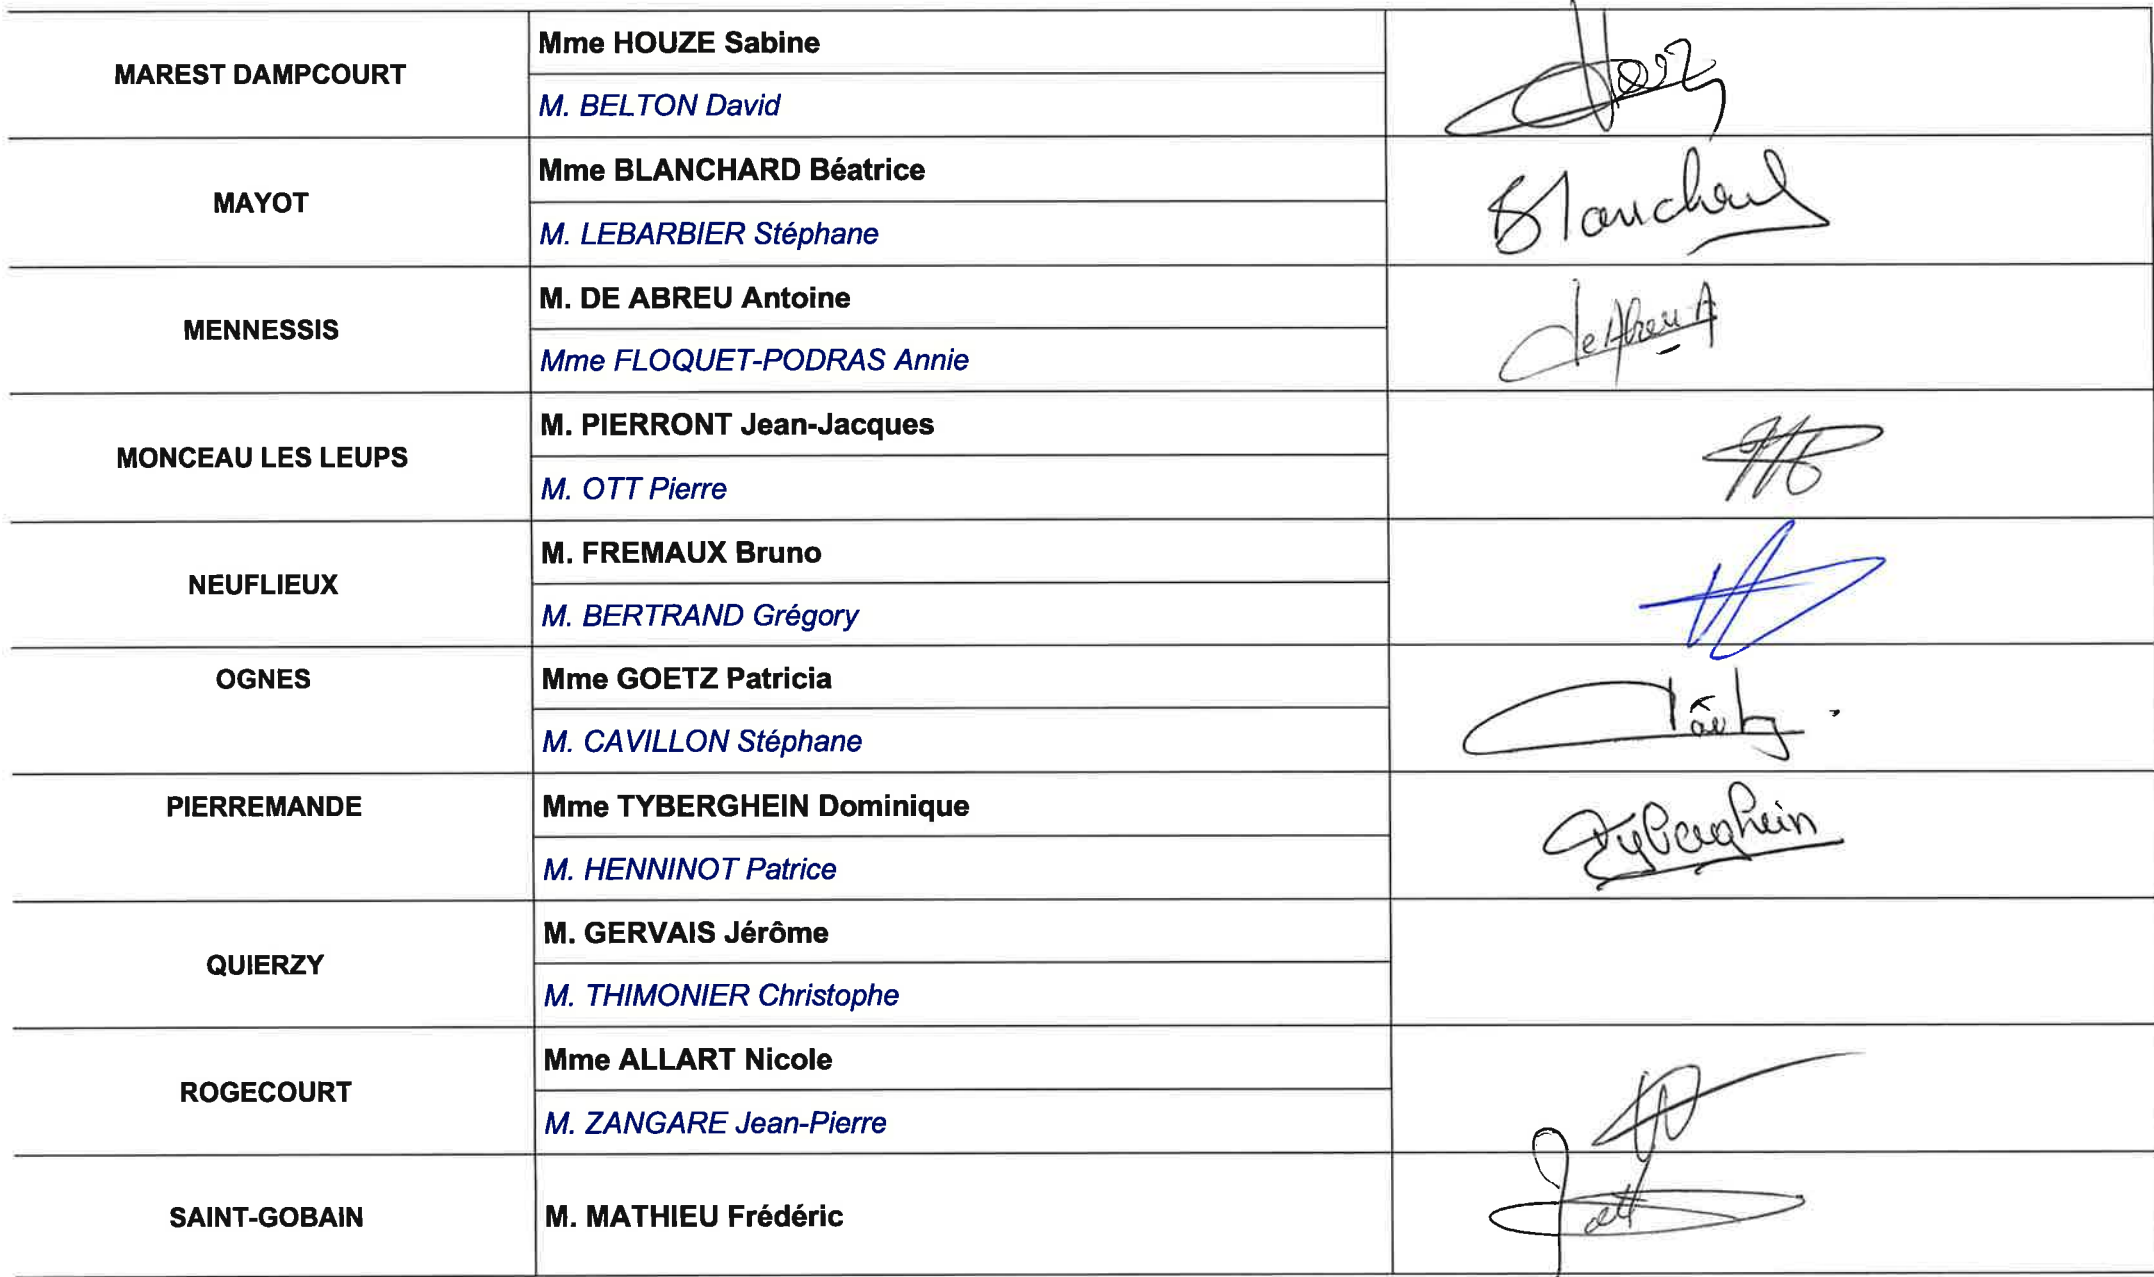 MAREST DAMPCOURT
Mme HOUZE Sabine
M. BELTON David
MAYOT
Mme BLANCHARD Béatrice
M. LEBARBIER Stéphane
Blanchard
MENNESSIS
M. DE ABREU Antoine
Mme FLOQUET-PODRAS Annie
de Abreu A
MONCEAU LES LEUPS
M. PIERRONT Jean-Jacques
M. OTT Pierre
NEUFLIEUX
M. FREMAUX Bruno
M. BERTRAND Grégory
OGNES
Mme GOETZ Patricia
M. CAVILLON Stéphane
PIERREMANDE
Mme TYBERGHEIN Dominique
M. HENNINOT Patrice
Tyberghein
QUIERZY
M. GERVAIS Jérôme
M. THIMONIER Christophe
ROGECOURT
Mme ALLART Nicole
M. ZANGARE Jean-Pierre
SAINT-GOBAIN
M. MATHIEU Frédéric